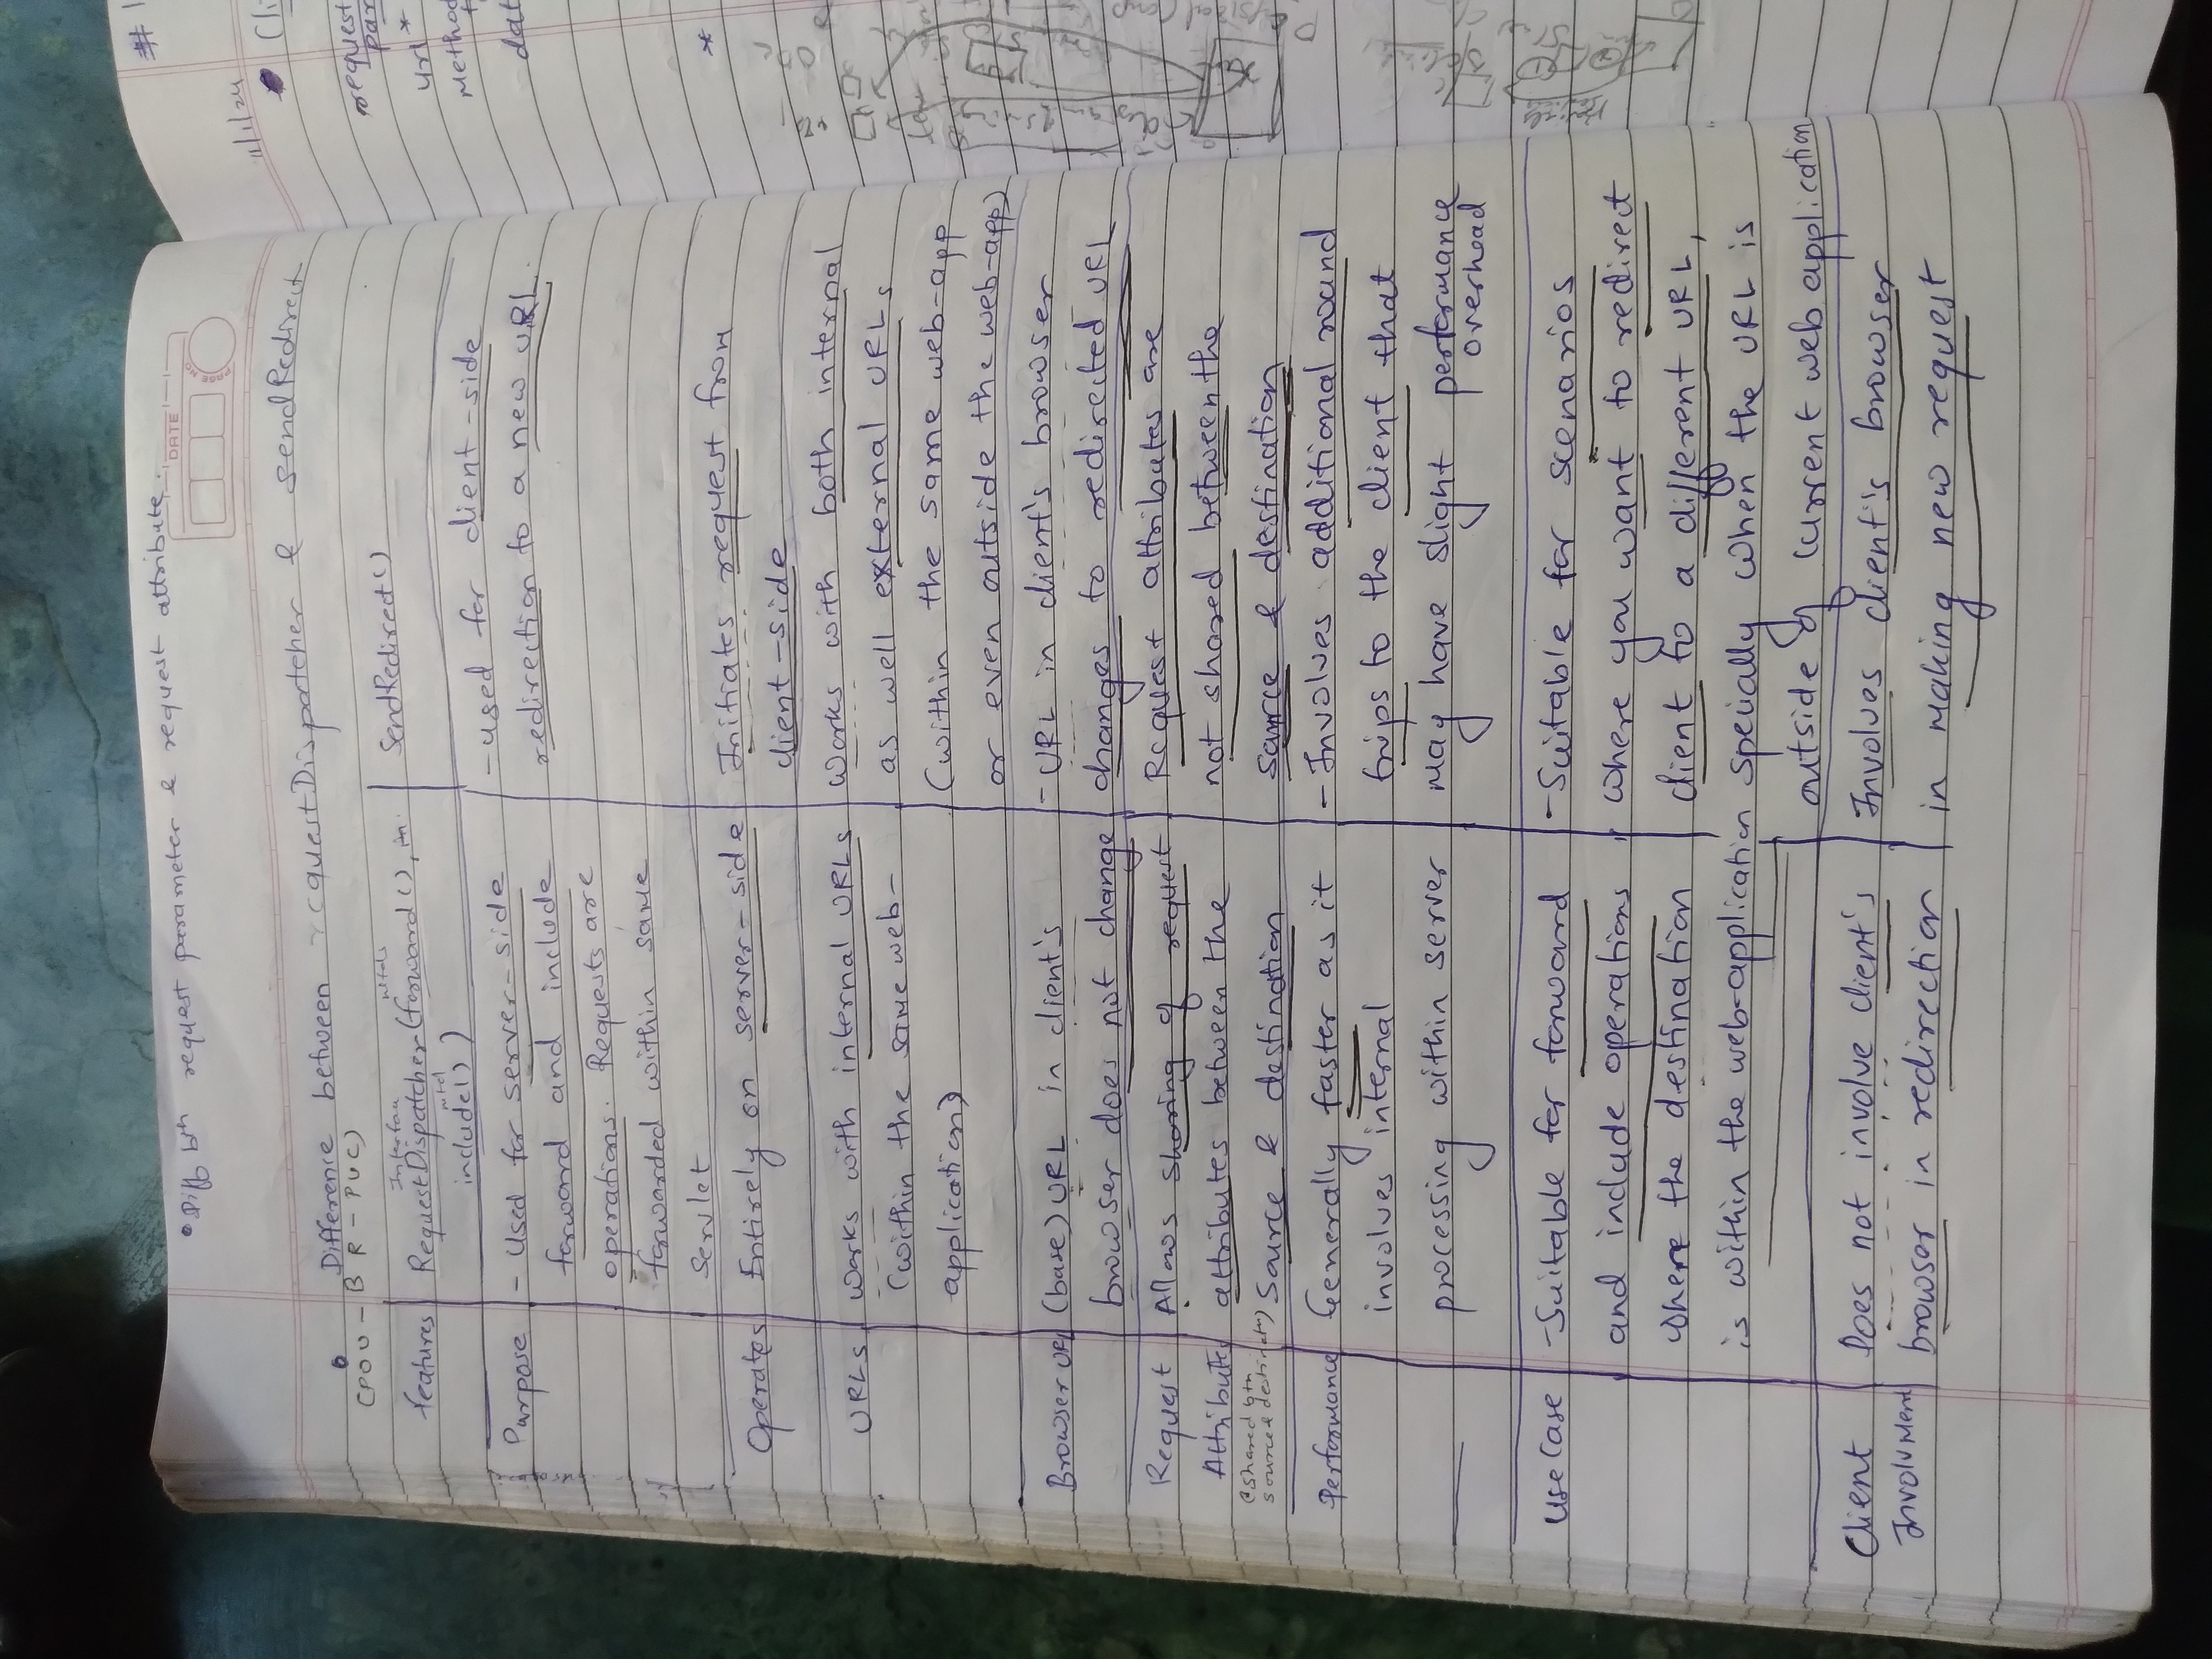 • Diff btn request parameter & request attribute.
DATE
PAGE NO.
Difference between requestDispatcher & sendRedirect
(POU - B R - PUC)
features
Interface mtds
RequestDispatcher (forward(),
mtd
include())
SendRedirect()
Purpose
- Used for server-side
forward and include
operations. Requests are
forwarded within same
Servlet
- used for client-side
redirection to a new URL.
Operates
Entirely on server-side
Initiates request from
client-side
URLs
works with internal URLs
(within the same web-
application)
works with both internal
as well external URLs
(within the same web-app
or even outside the web-app)
Browser URL
(base) URL in client's
browser does not change
- URL in client's browser
changes to redirected URL
Request
Attribute
(shared btn
source & destination)
Allows sharing of request
attributes between the
Source & destination
Request attributes are
not shared between the
source & destination
Performance
Generally faster as it
involves internal
processing within server
- Involves additional round
trips to the client that
may have slight performance
overhead
Use Case
- Suitable for forward
and include operations
where the destination
is within the web-application
- Suitable for scenarios
where you want to redirect
client to a different URL,
specially when the URL is
outside of current web application
Client
Involvment
Does not involve client's
browser in redirection
Involves client's browser
in making new request
11/1/24
request
par
url *
Method
dat